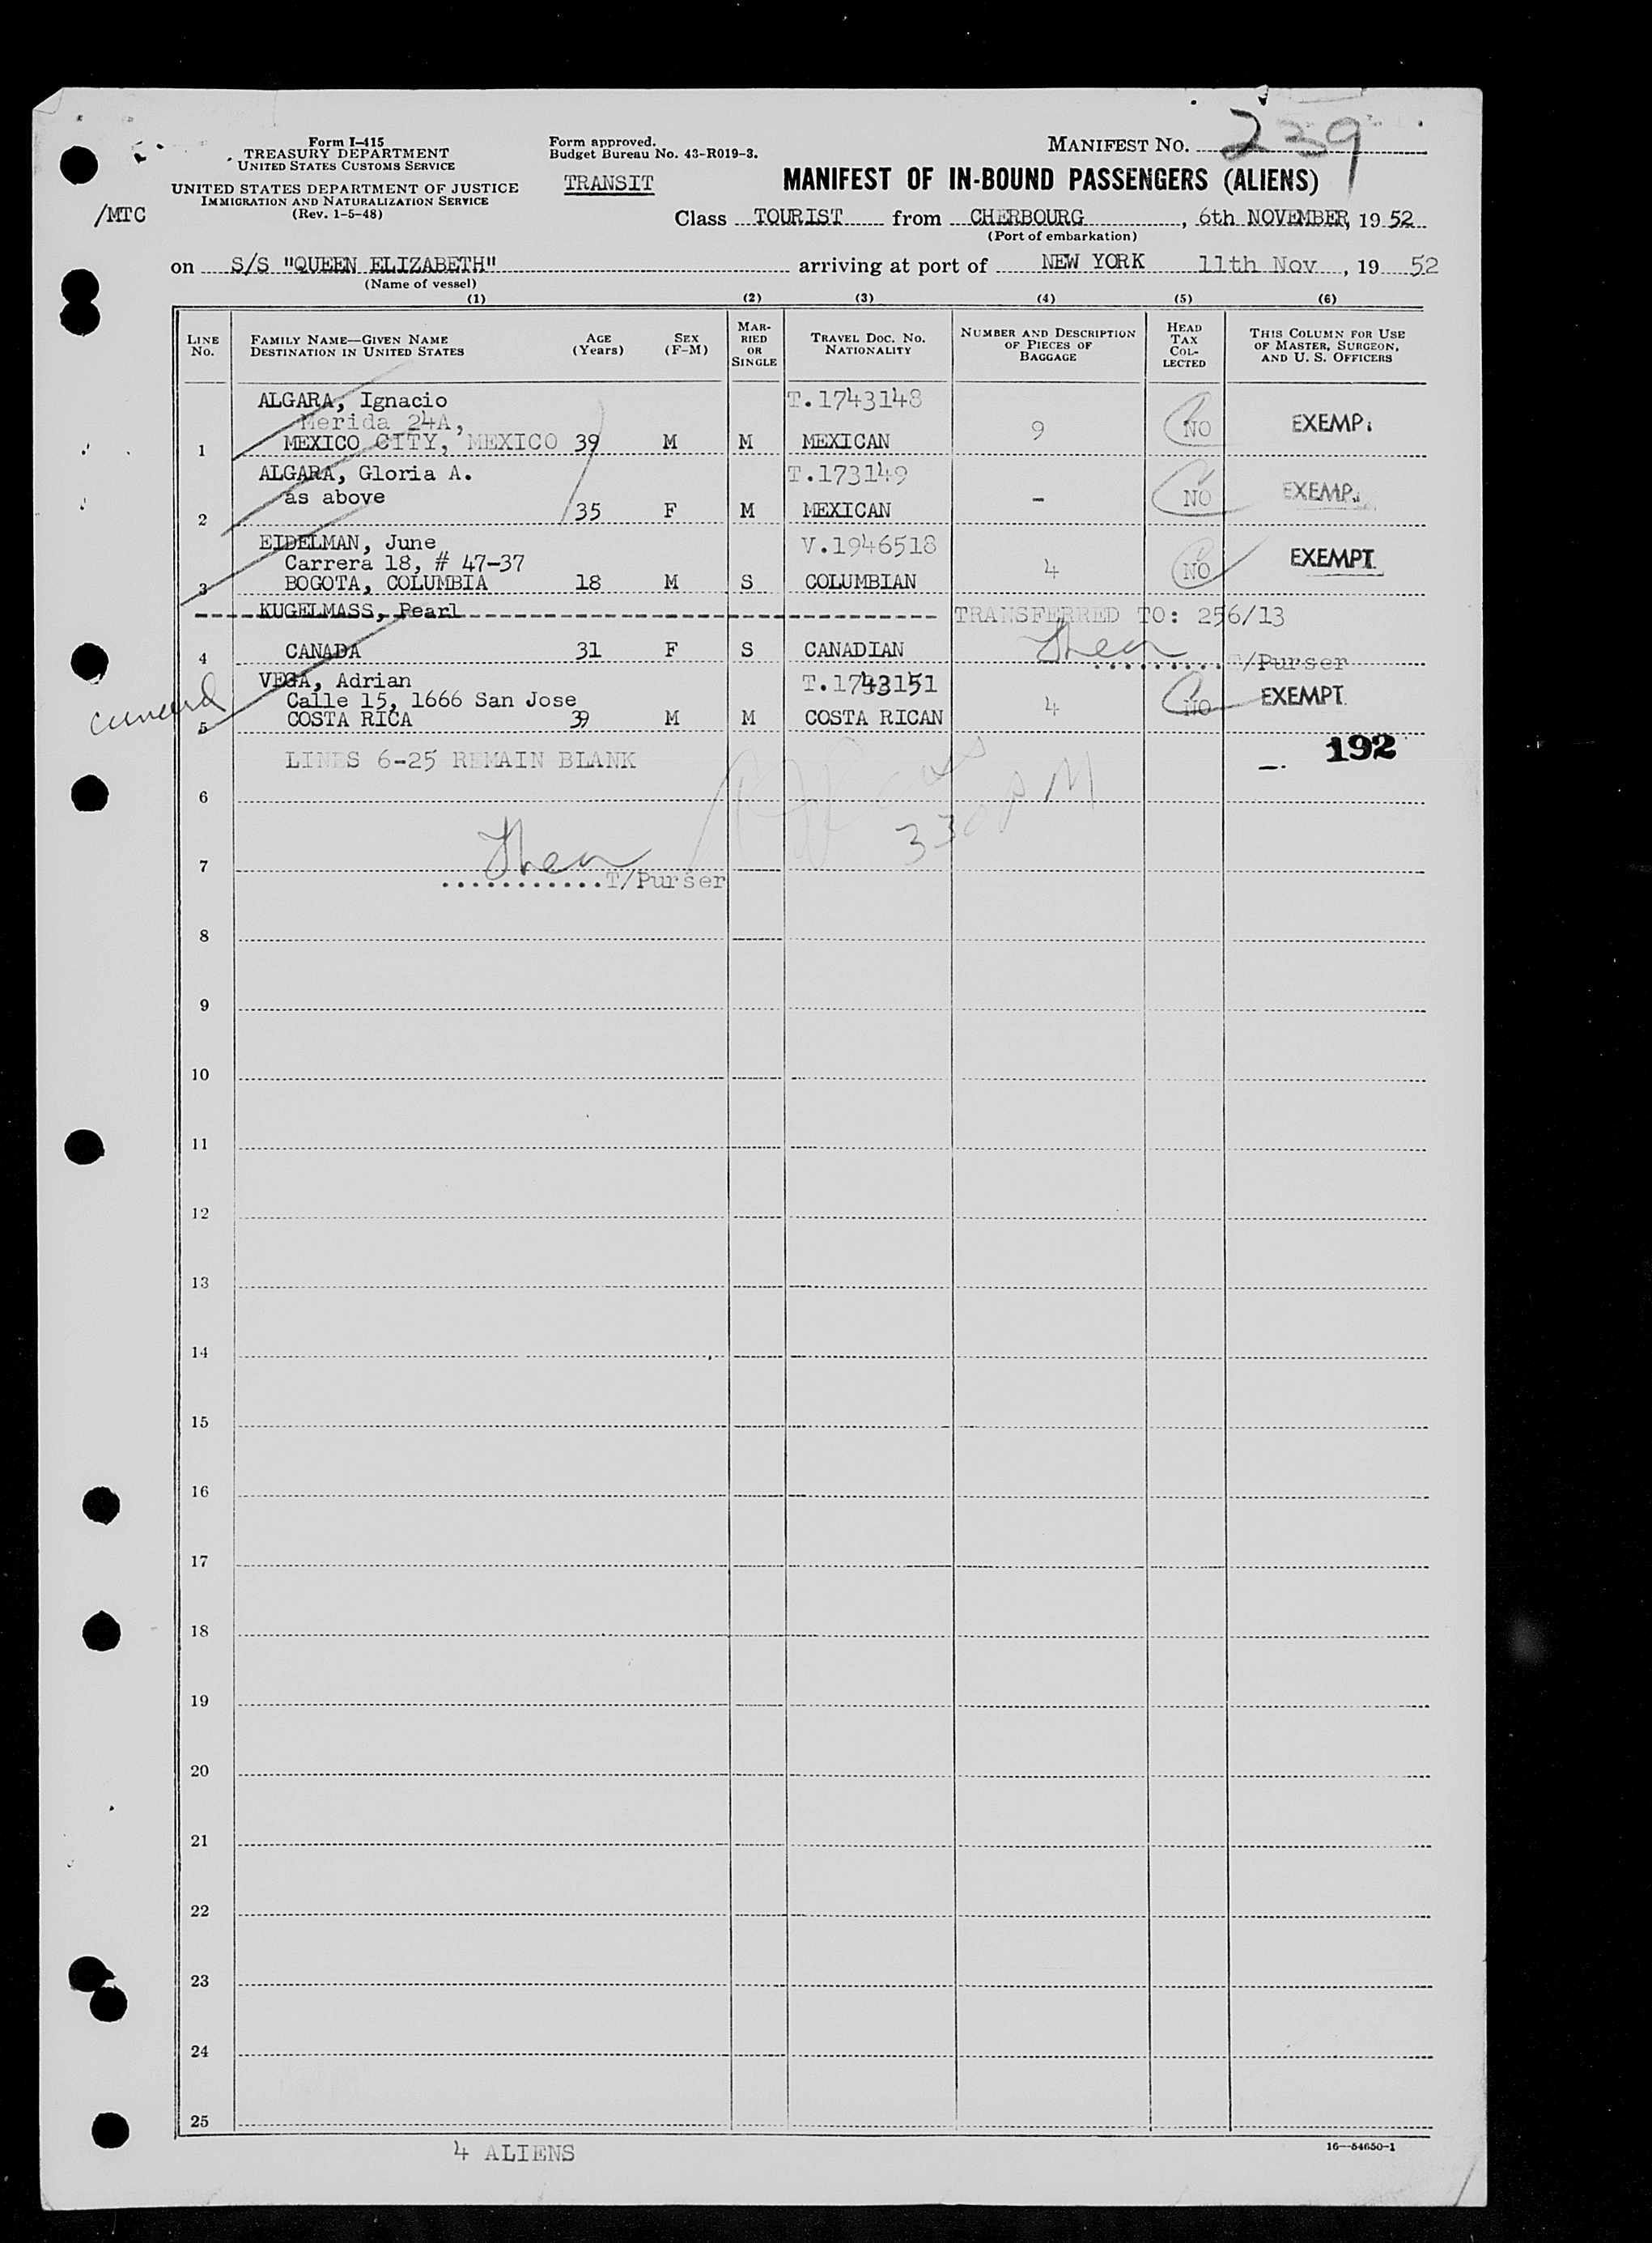 Form I-415
TREASURY DEPARTMENT
UNITED STATES CUSTOMS SERVICE
UNITED STATES DEPARTMENT OF JUSTICE
IMMIGRATION AND NATURALIZATION SERVICE
(Rev. 1-5-48)
/MTC
Form approved.
Budget Bureau No. 43-R019-3.
TRANSIT
MANIFEST NO. 239
MANIFEST OF IN-BOUND PASSENGERS (ALIENS)
Class TOURIST from CHERBOURG, 6th NOVEMBER, 19 52
(Port of embarkation)
on S/S "QUEEN ELIZABETH" arriving at port of NEW YORK 11th Nov, 19 52
(Name of vessel)
(1) (2) (3) (4) (5) (6)
LINE No. FAMILY NAME—GIVEN NAME DESTINATION IN UNITED STATES AGE (Years) SEX (F-M) MARRIED OR SINGLE TRAVEL DOC. NO. NATIONALITY NUMBER AND DESCRIPTION OF PIECES OF BAGGAGE HEAD TAX COLLECTED THIS COLUMN FOR USE OF MASTER, SURGEON, AND U. S. OFFICERS
ALGARA, Ignacio T.1743148
Merida 24A,
1 MEXICO CITY, MEXICO 39 M M MEXICAN 9 NO EXEMP.
ALGARA, Gloria A. T.173149
as above
2 35 F M MEXICAN - NO EXEMP.
EIDELMAN, June V.1946518
Carrera 18, # 47-37
3 BOGOTA, COLUMBIA 18 M S COLUMBIAN 4 NO EXEMPT
KUGELMASS, Pearl TRANSFERRED TO: 256/13
4 CANADA 31 F S CANADIAN T/Purser
VEGA, Adrian T.1743151
Calle 15, 1666 San Jose
5 COSTA RICA 39 M M COSTA RICAN 4 NO EXEMPT.
192
LINES 6-25 REMAIN BLANK
6
330 PM
7
T/Purser
8
9
10
11
12
13
14
15
16
17
18
19
20
21
22
23
24
25
4 ALIENS
16—54650-1